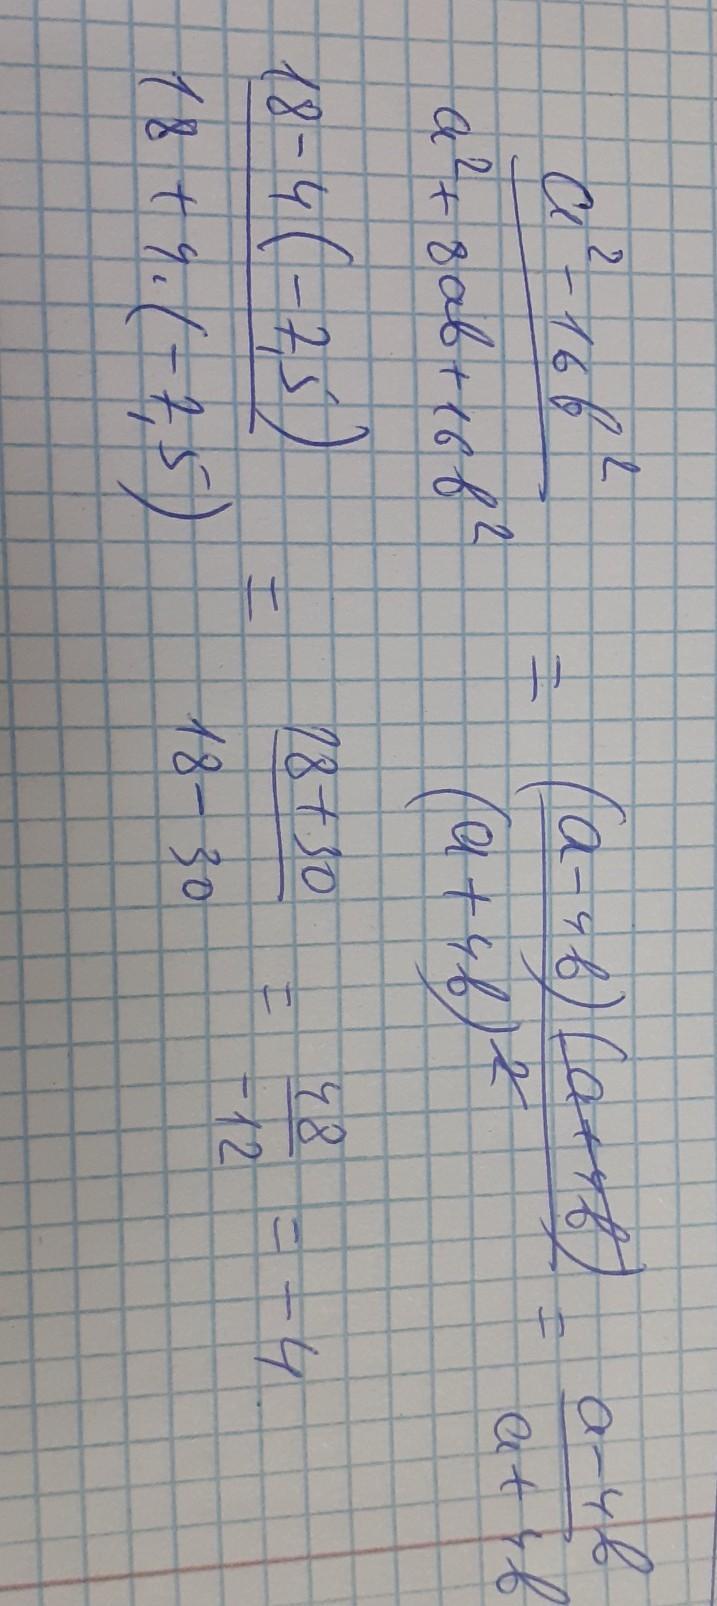 a² - 16b² / a² + 8ab + 16b² = (a - 4b)(a + 4b) / (a + 4b)² = a - 4b / a + 4b
18 - 4(-7,5) / 18 + 4·(-7,5) = 18 + 30 / 18 - 30 = 48 / -12 = -4